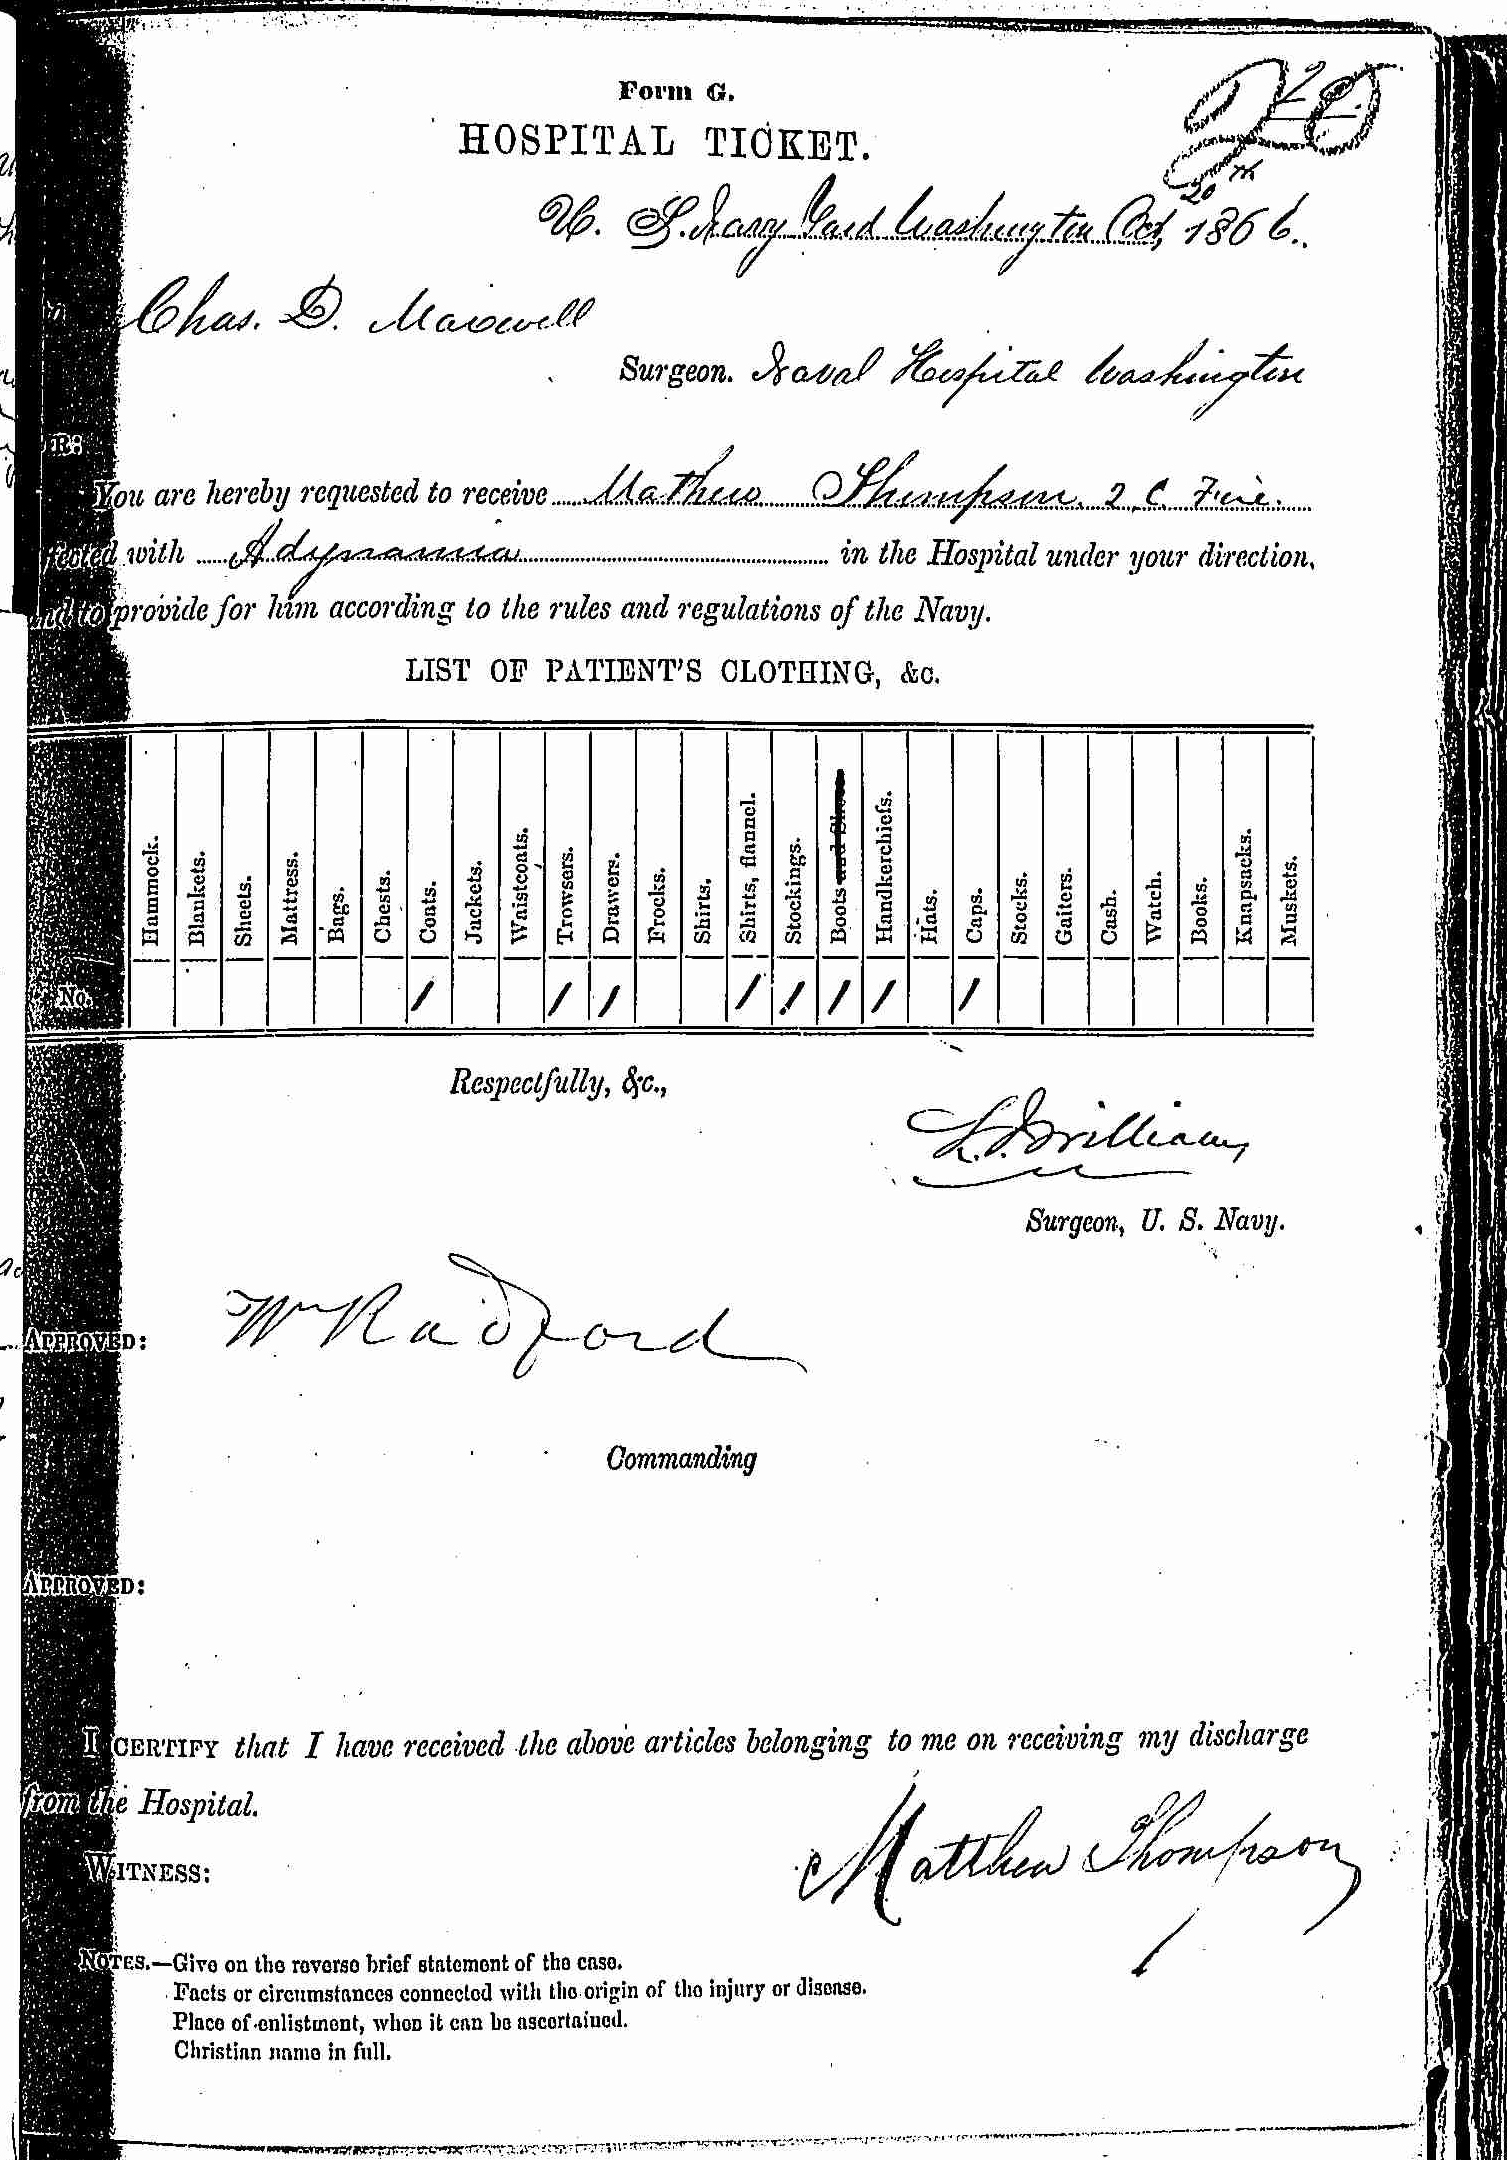 Form G.
HOSPITAL TICKET.
20
20th
U. S. Navy Yard Washington Oct, 1866.
Chas. D. Maxwell
Surgeon. Naval Hospital Washington
You are hereby requested to receive Mathew Thompson 2.C. Fire.
fected with Adynamia in the Hospital under your direction,
and to provide for him according to the rules and regulations of the Navy.
LIST OF PATIENT'S CLOTHING, &c.
Hammock. Blankets. Sheets. Mattress. Bags. Chests. Coats. Jackets. Waistcoats. Trowsers. Drawers. Frocks. Shirts. Shirts, flannel. Stockings. Boots and Shoes Handkerchiefs. Hats. Caps. Stocks. Gaiters. Cash. Watch. Books. Knapsacks. Muskets.
No. 1 1 1 1 1 1 1 1
Respectfully, &c.,
Williams
Surgeon, U. S. Navy.
APPROVED: Wm Radford
Commanding
APPROVED:
I CERTIFY that I have received the above articles belonging to me on receiving my discharge
from the Hospital.
Matthew Thompson
WITNESS:
NOTES.—Give on the reverse brief statement of the case.
Facts or circumstances connected with the origin of the injury or disease.
Place of enlistment, when it can be ascertained.
Christian name in full.